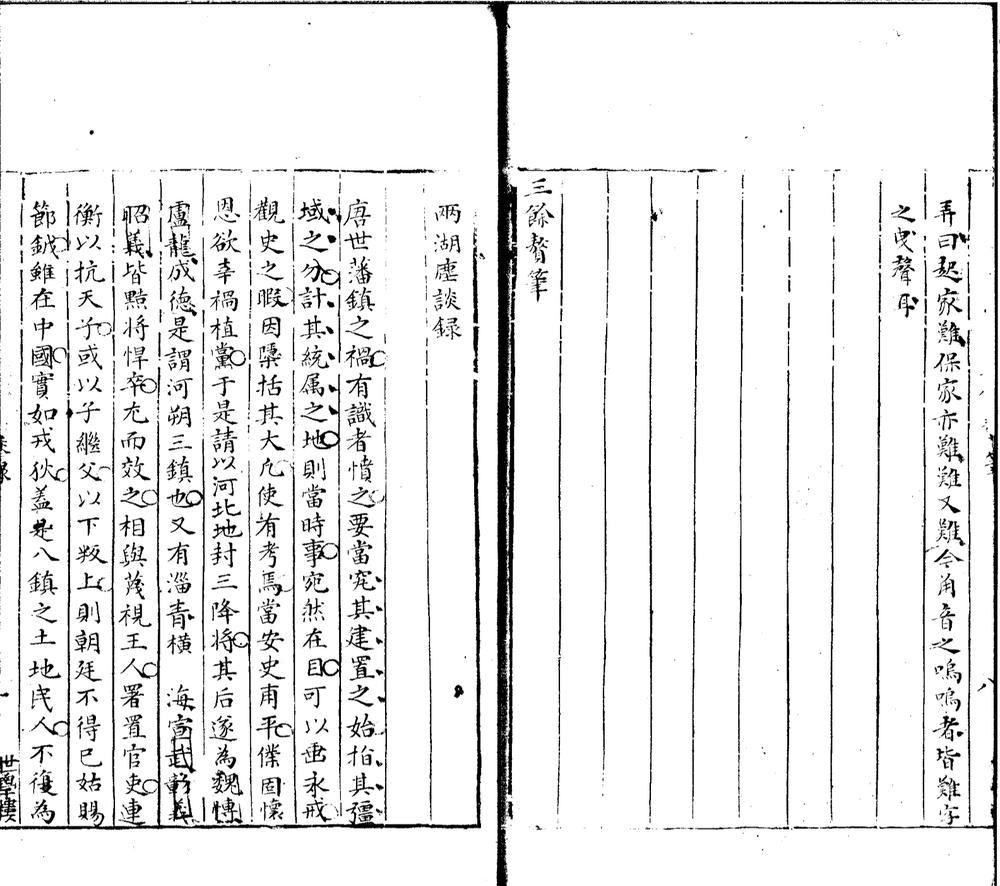 弄曰起家難保家亦難難又難今角音之嗚嗚者皆難字
之曳聲耳
三餘贅筆
兩湖塵談録
唐世藩鎮之禍有識者憤之要當究其建置之始指其疆
域之分計其統属之地則當時事宛然在目可以垂永戒
觀史之暇因檃括其大凡使有考焉當安史甫平僕固懷
恩欲幸禍植黨于是請以河北地封三降将其后遂為魏博
盧龍成德是謂河朔三鎮也又有淄青橫 海宣武彰義
昭義皆黠将悍卒尤而效之相與蔑視王人署置官吏連
衡以抗天子或以子繼父以下叛上則朝廷不得已姑賜
節鉞雖在中國實如戎狄蓋是八鎮之土地民人不復為
八